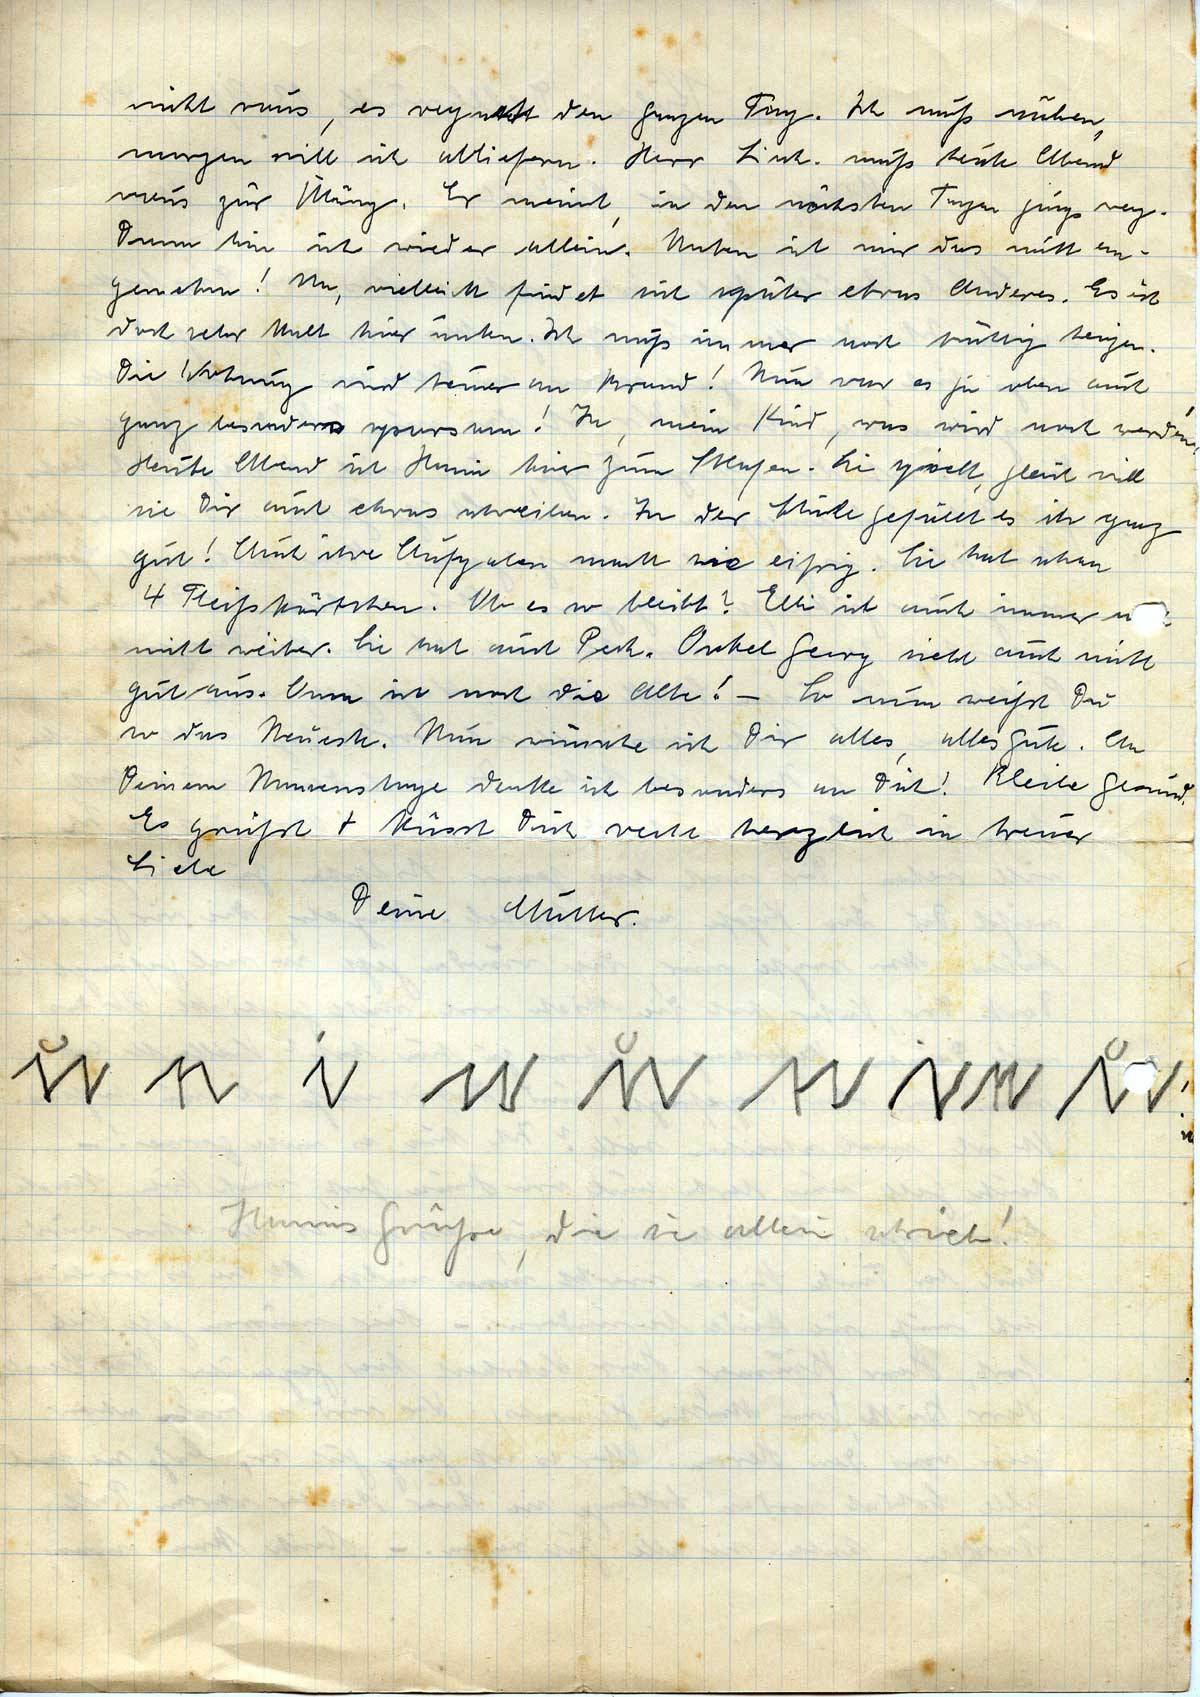 nicht raus, es regnet den ganzen Tag. Ich muß nähen,
morgen will ich abliefern. Herr Link. muß heute Abend
raus zur Übung. Er meint, in den nächsten Tagen gings weg.
Dann bin ich wieder allein. Unten ist mir das nicht an-
genehm! Na, vielleicht findet sich später etwas Anderes. Es ist
doch sehr kalt hier unten. Ich muß immer noch tüchtig heizen.
Die Wohnung wird teuer an Brand! Nun war es ja oben auch
ganz besonders sparsam! Ja, mein Kind, was wird noch werden.
Heute Abend ist Hanni hier zum Schlafen. Sie spielt, gleich will
sie Dir auch etwas schreiben. In der Schule gefällt es ihr ganz
gut! Auch ihre Aufgaben macht sie eifrig. Sie hat schon
4 Fleißkärtchen. Ob es so bleibt? Elli ist auch immer
nicht weiter. Sie hat auch Pech. Onkel Georg sieht auch nicht
gut aus. Oma ist noch die Alte! — So nun weißt Du
so das Neueste. Nun wünsche ich Dir alles, alles Gute. An
Deinem Namenstage denke ich besonders an Dich! Bleibe gesund.
Es grüßt + küsst Dich recht herzlich in treuer
Liebe
Deine Mutter.
Hannis Grüße, die sie allein schrieb!